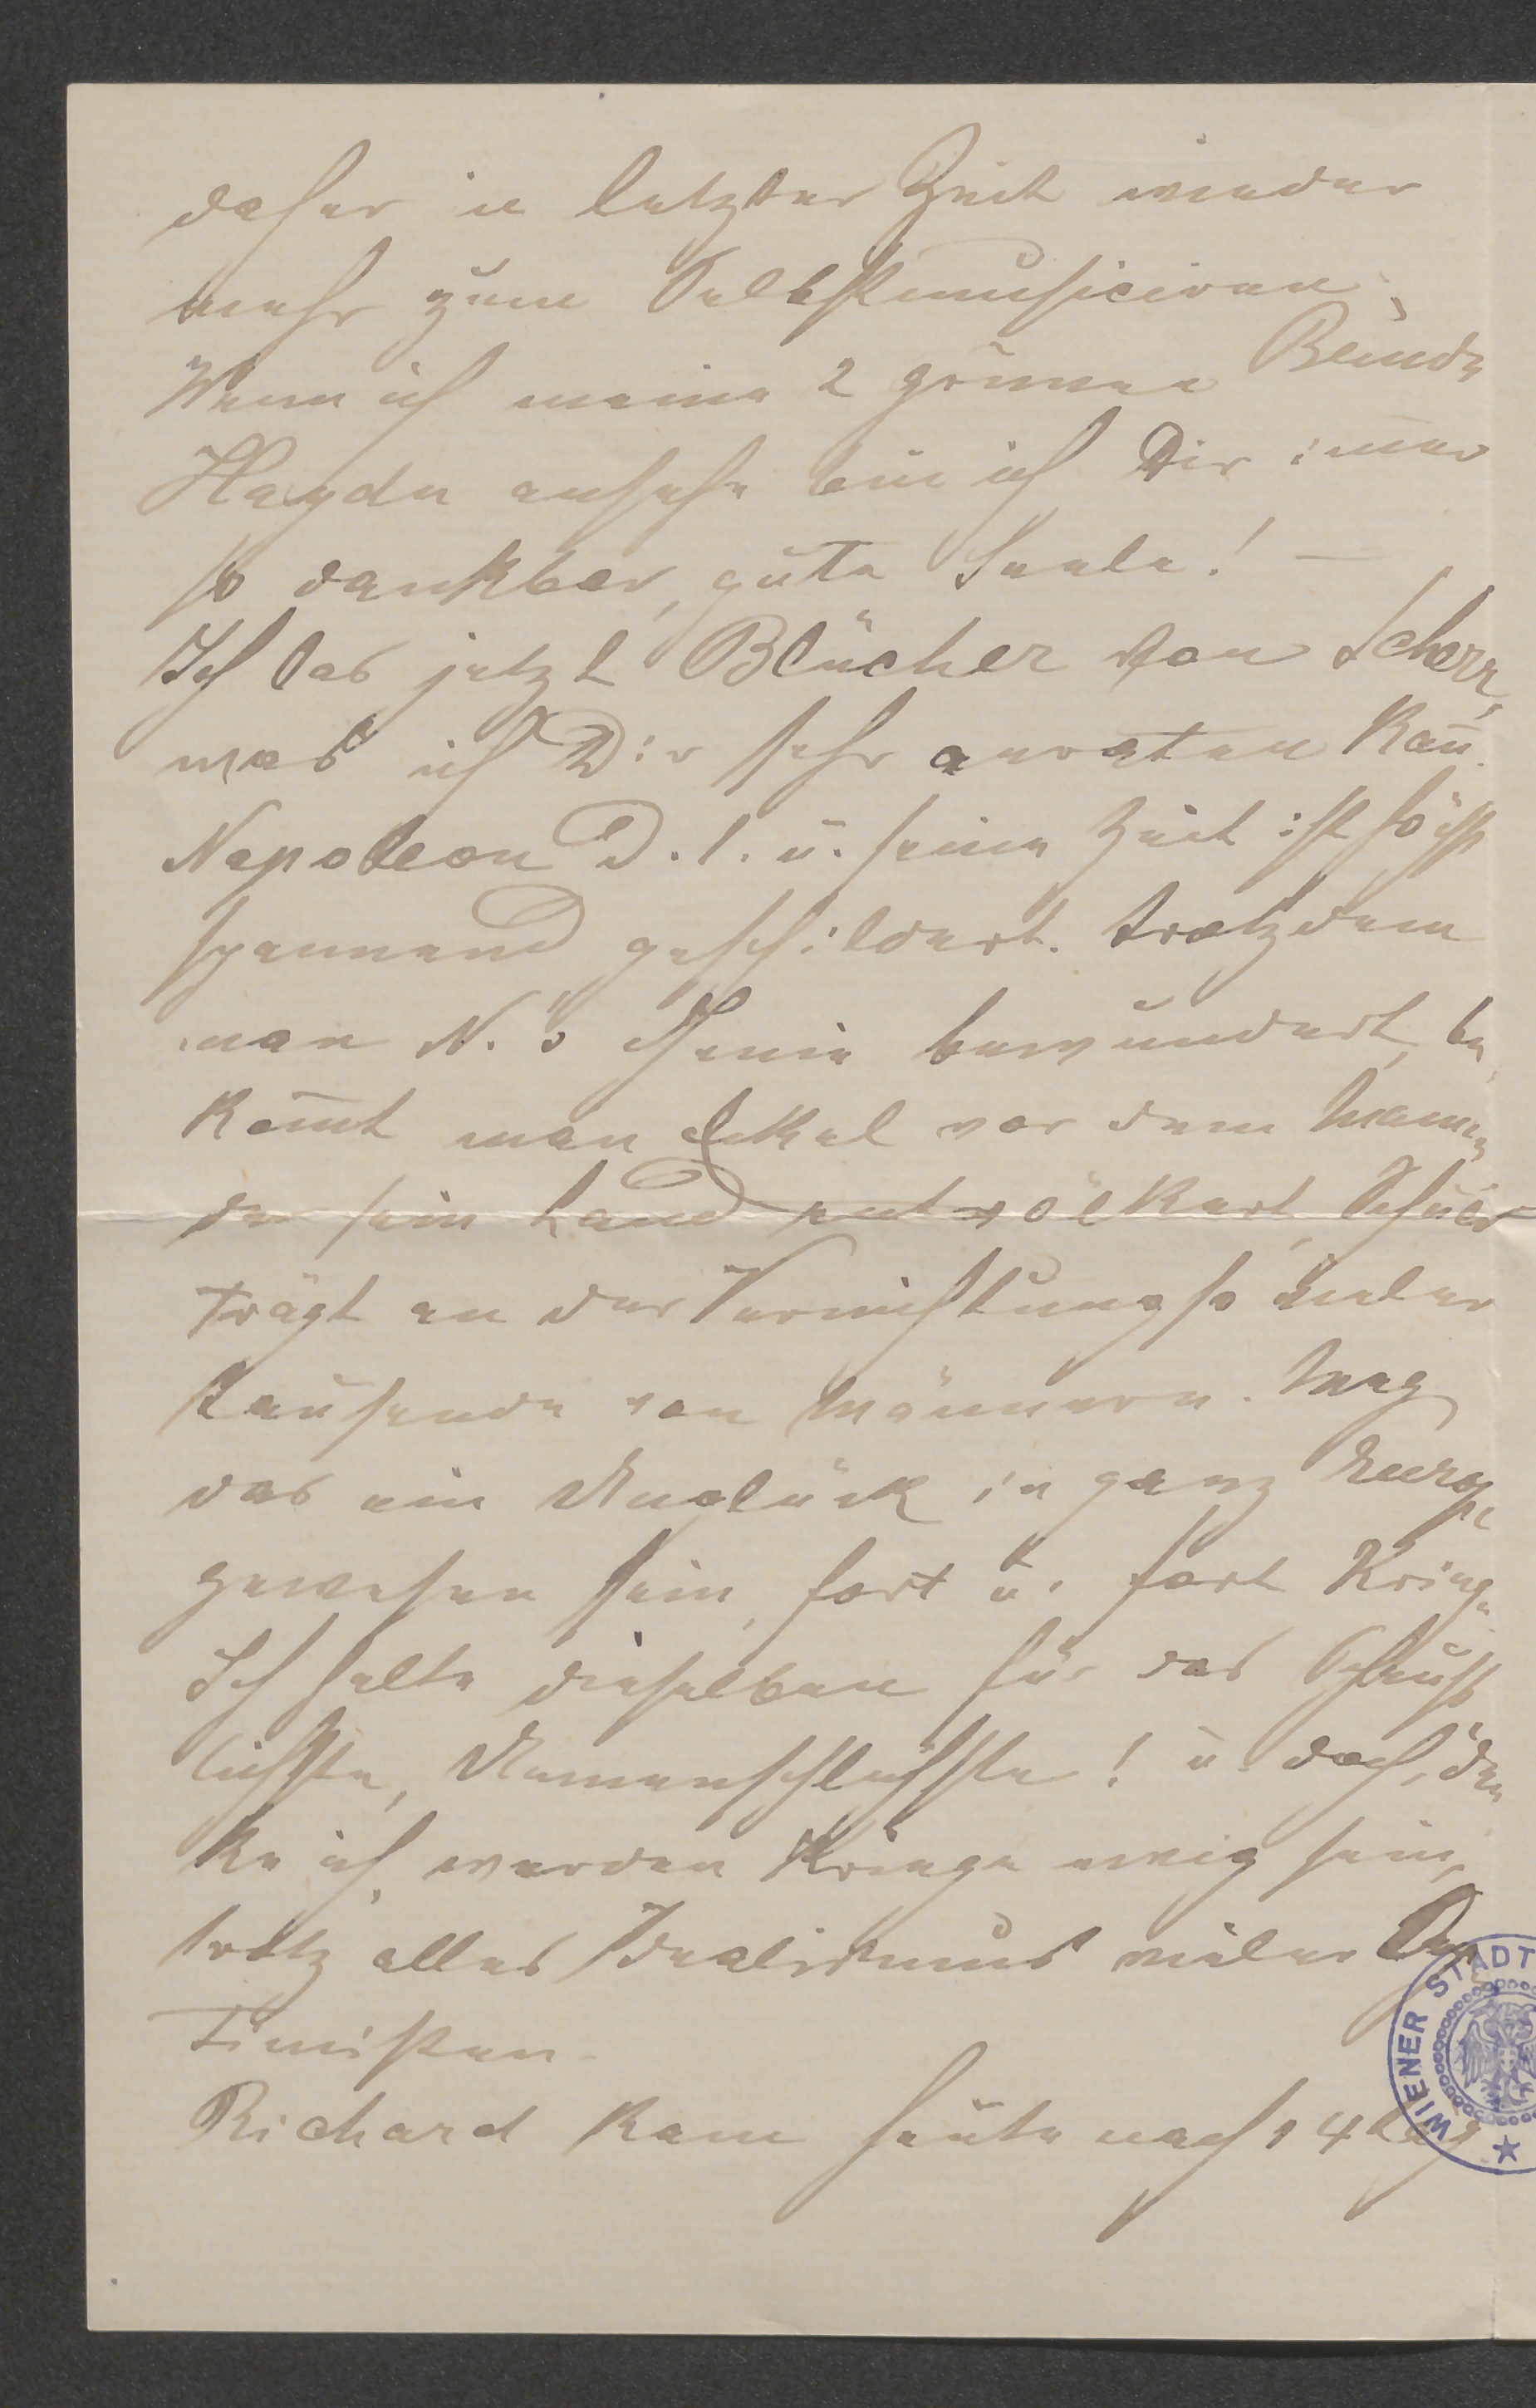 daher in letzter Zeit wieder
mehr zum Selbstmusiciren.
Wenn ich meine 2 grünen Bände
Haydn ansehe bin ich Dir im̄er
so dankbar, gute Seele! —
Ich las jetzt Blücher von Scherr,
was ich Dir sehr anraten kan̄.
Napoleon D. 1. u. seine Zeit ist höchst
spannend geschildert. trotzdem
man N.'s Genie bewundert, be
kom̄t man Ekel vor dem Manne,
der sein Land entvölkert, Schuld
trägt an der Vernichtung so vieler
tausende von Männern. Mag
das ein Unglück in ganz Europa
gewesen sein, fort u. fort Kriege.
Ich halte dieselben für das Scheuß
lichste, Unmenschlichste! u. doch, den
ke ich, werden Kriege ewig sein,
trotz alles Idealismus vieler Op
timisten.
Richard kam heute nach 14
WIENER STADT